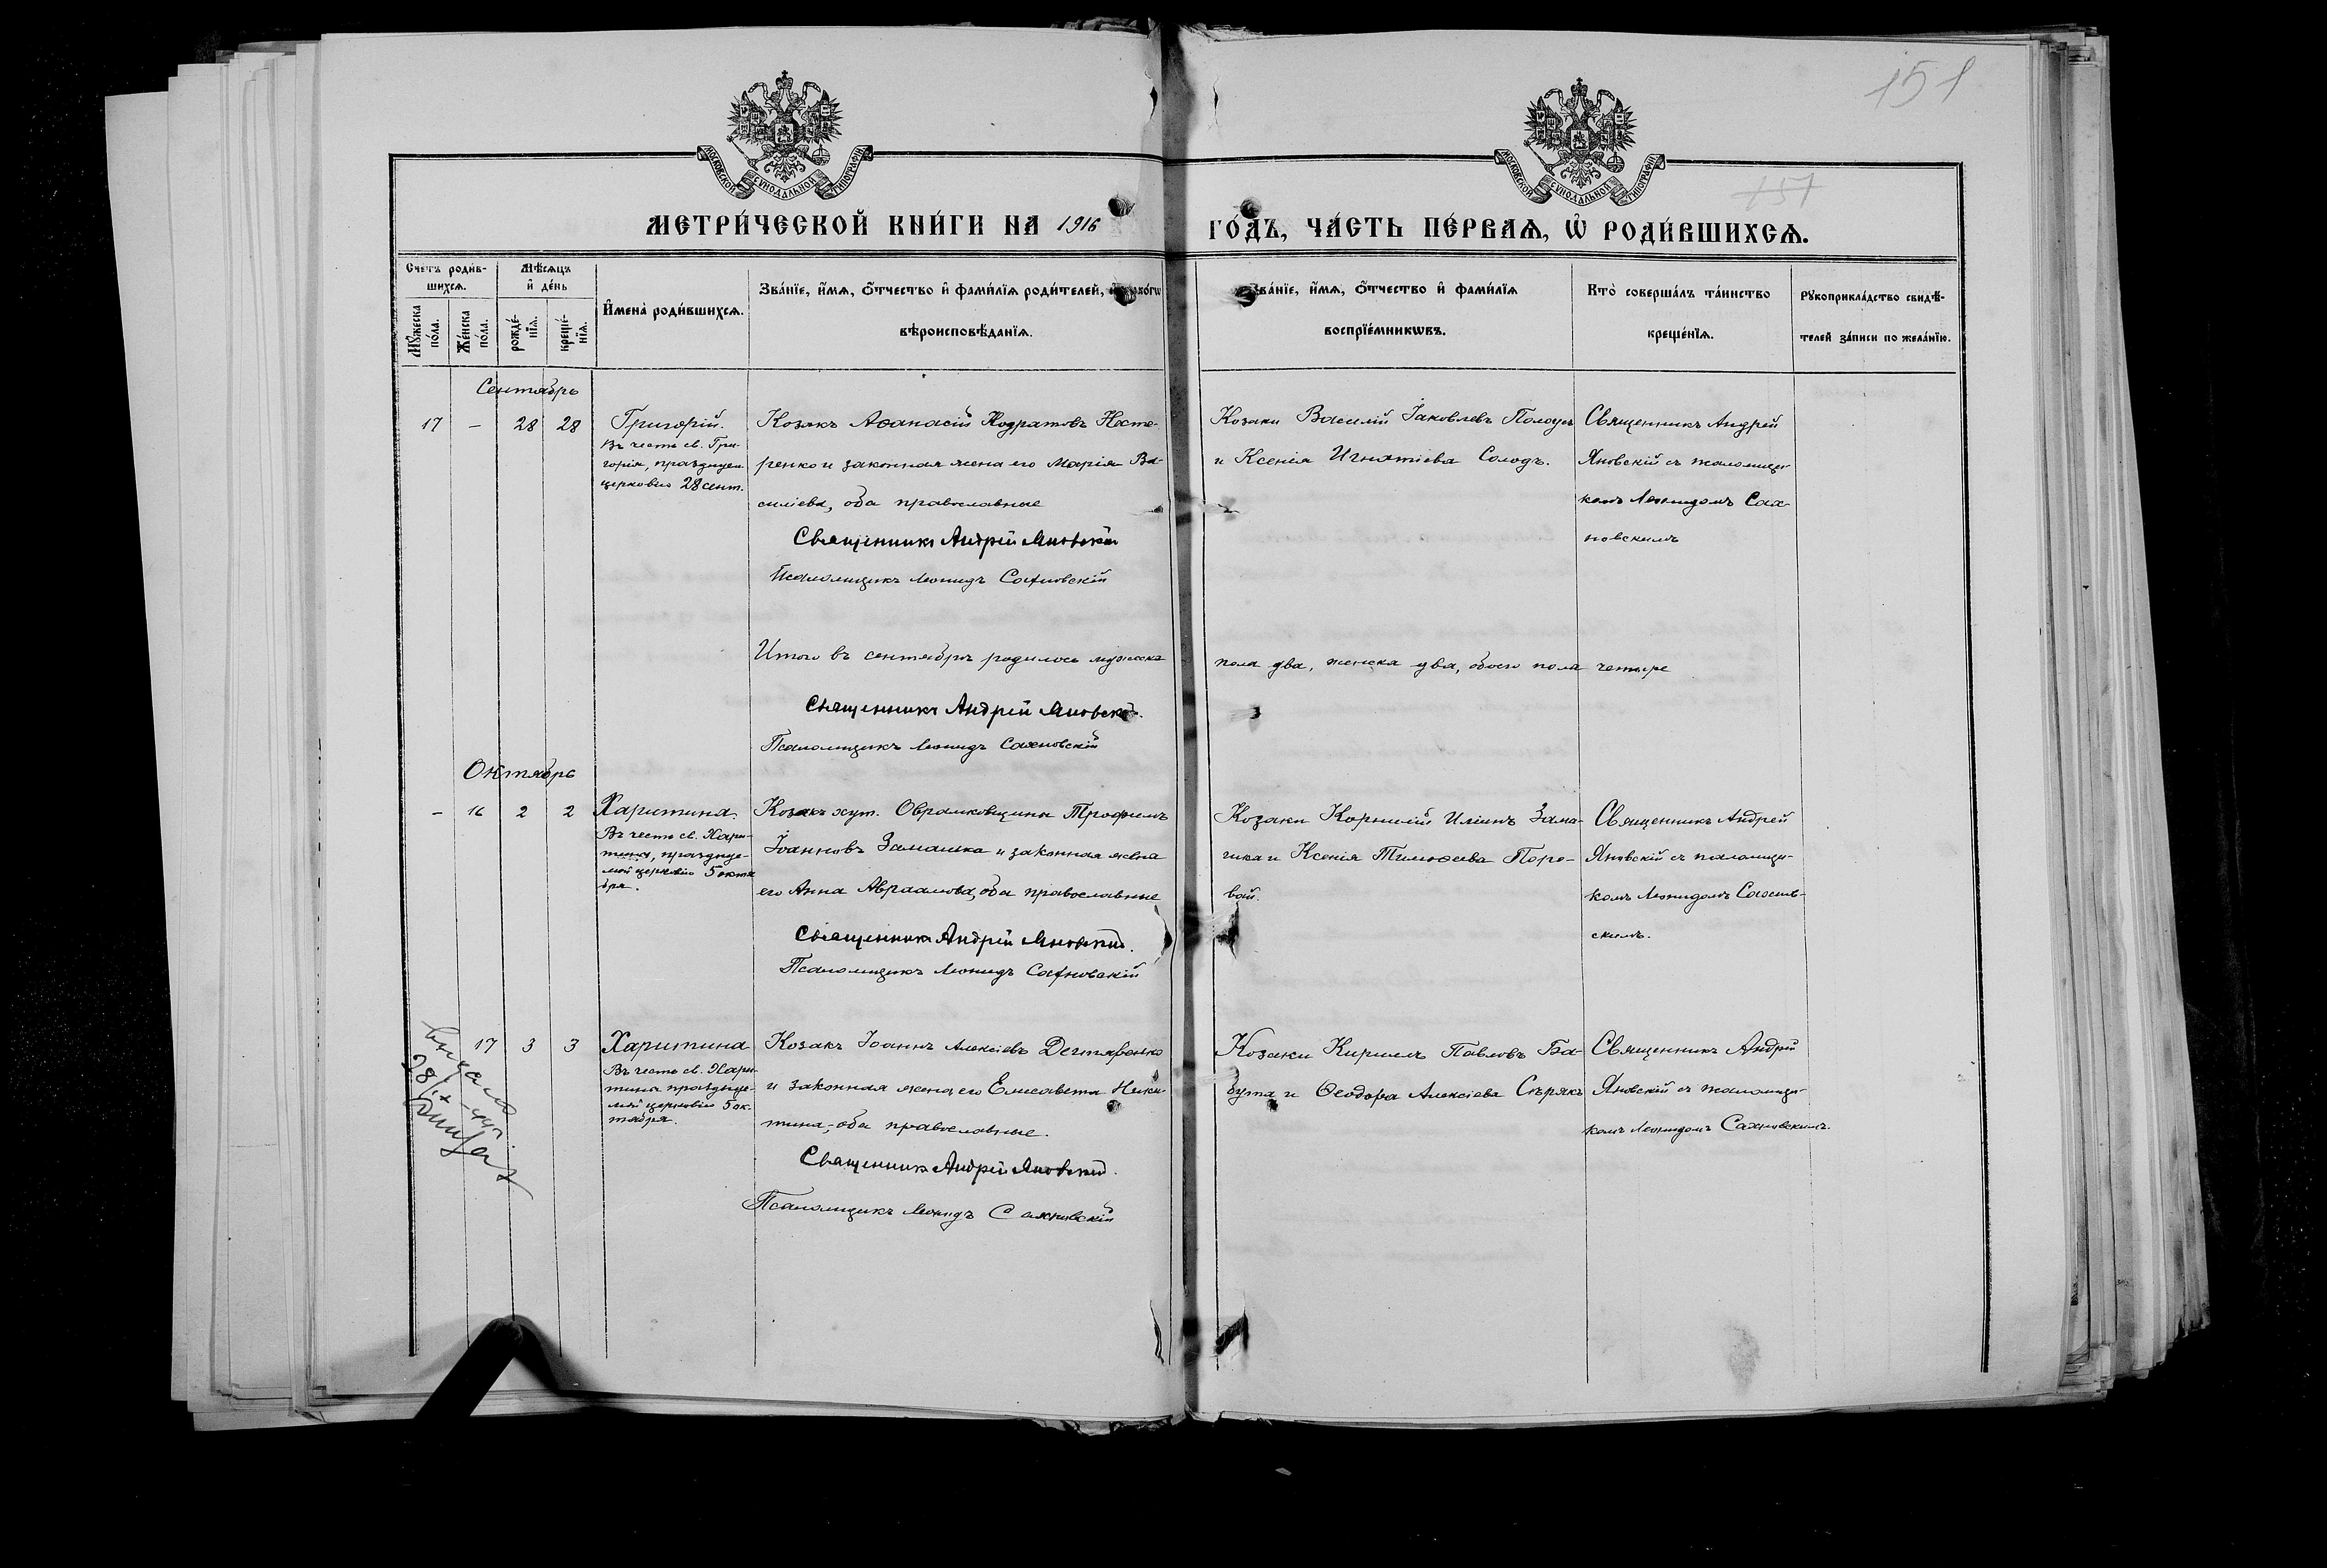 151
МОСКОВСКОЙ СУНОДАЛЬНОЙ ТИПОГРАФІИ
МОСКОВСКОЙ СУНОДАЛЬНОЙ ТИПОГРАФІИ
151
МЕТРИ́ЧЕСКОЙ КНИ́ГИ НА 1916 ГО́ДЪ, ЧА́СТЬ ПЕ́РВАѦ, Ѡ РОДИ́ВШИХСѦ.
Счетъ роди́в-
шихсѧ.
Мꙋ́жеска по́ла.
Же́нска по́ла.
Мѣ́сѧцъ
и де́нь
рожде́-
нїѧ.
креще́-
нїѧ.
Имена̀ роди́вшихсѧ.
Зва́нїе, и́мѧ, о́тчество и фами́лїѧ роди́телей,
вѣроисповѣ́данїѧ.
Зва́нїе, и́мѧ, о́тчество и фами́лїѧ
воспрїе́мникѡвъ.
Кто̀ соверша́лъ та́инство
креще́нїѧ.
Рꙋкоприкла́дство свидѣ́-
телей за́писи по жела́нїю.
Сентябрь
17 — 28 28
Григорій.
Въ честь св. Гри-
горія, празднуем.
церковію 28 сент.
Козакъ Аѳанасій Кодратовъ Несте-
ренко и законная жена его Марія Ва-
силіева, оба православные
Священникъ Андрей Яновскій
Псаломщикъ Леонидъ Сахновскій
Козаки Василій Іаковлевъ
и Ксенія Игнатіева Солодъ.
Священникъ Андрей
Яновскій съ псаломщи-
комъ Леонидомъ Сах-
новскимъ
Итого въ сентябрѣ родилось мужеска пола два, женска два, обоего пола четыре
Священникъ Андрей Яновскій.
Псаломщикъ Леонидъ Сахновскій
Октябрь
— 16 2 2
Харитина.
Въ честь св. Хари-
тины, празднуе-
мой церковію 5 октя
бря.
Козакъ хут. Оврамковщины Трофимъ
Іоанновъ Замашка и законная жена
его Анна Авраамова, оба православные
Священникъ Андрей Яновскій.
Псаломщикъ Леонидъ Сахновскій
Козаки Корнилій Иліинъ Зама-
и Ксенія Тимоѳеева Поро-
вай.
Священникъ Андрей
Яновскій съ псаломщи-
комъ Леонидомъ Сахнов-
скимъ.
17 3 3
Харитина
Въ честь св. Хари-
тины празднуе-
мой церковію 5 ок-
тября.
Козакъ Іоаннъ Алексіевъ Дегтяренко
и законная жена его Елисавета Ники-
тина, оба православные.
Священникъ Андрей Яновскій.
Псаломщикъ Леонидъ Сахновскій
Козаки Кириллъ Павловъ Ба-
бута и Ѳеодора Алексіева Сѣрякъ
Священникъ Андрей
Яновскій съ псаломщи-
комъ Леонидомъ Сахновскимъ.